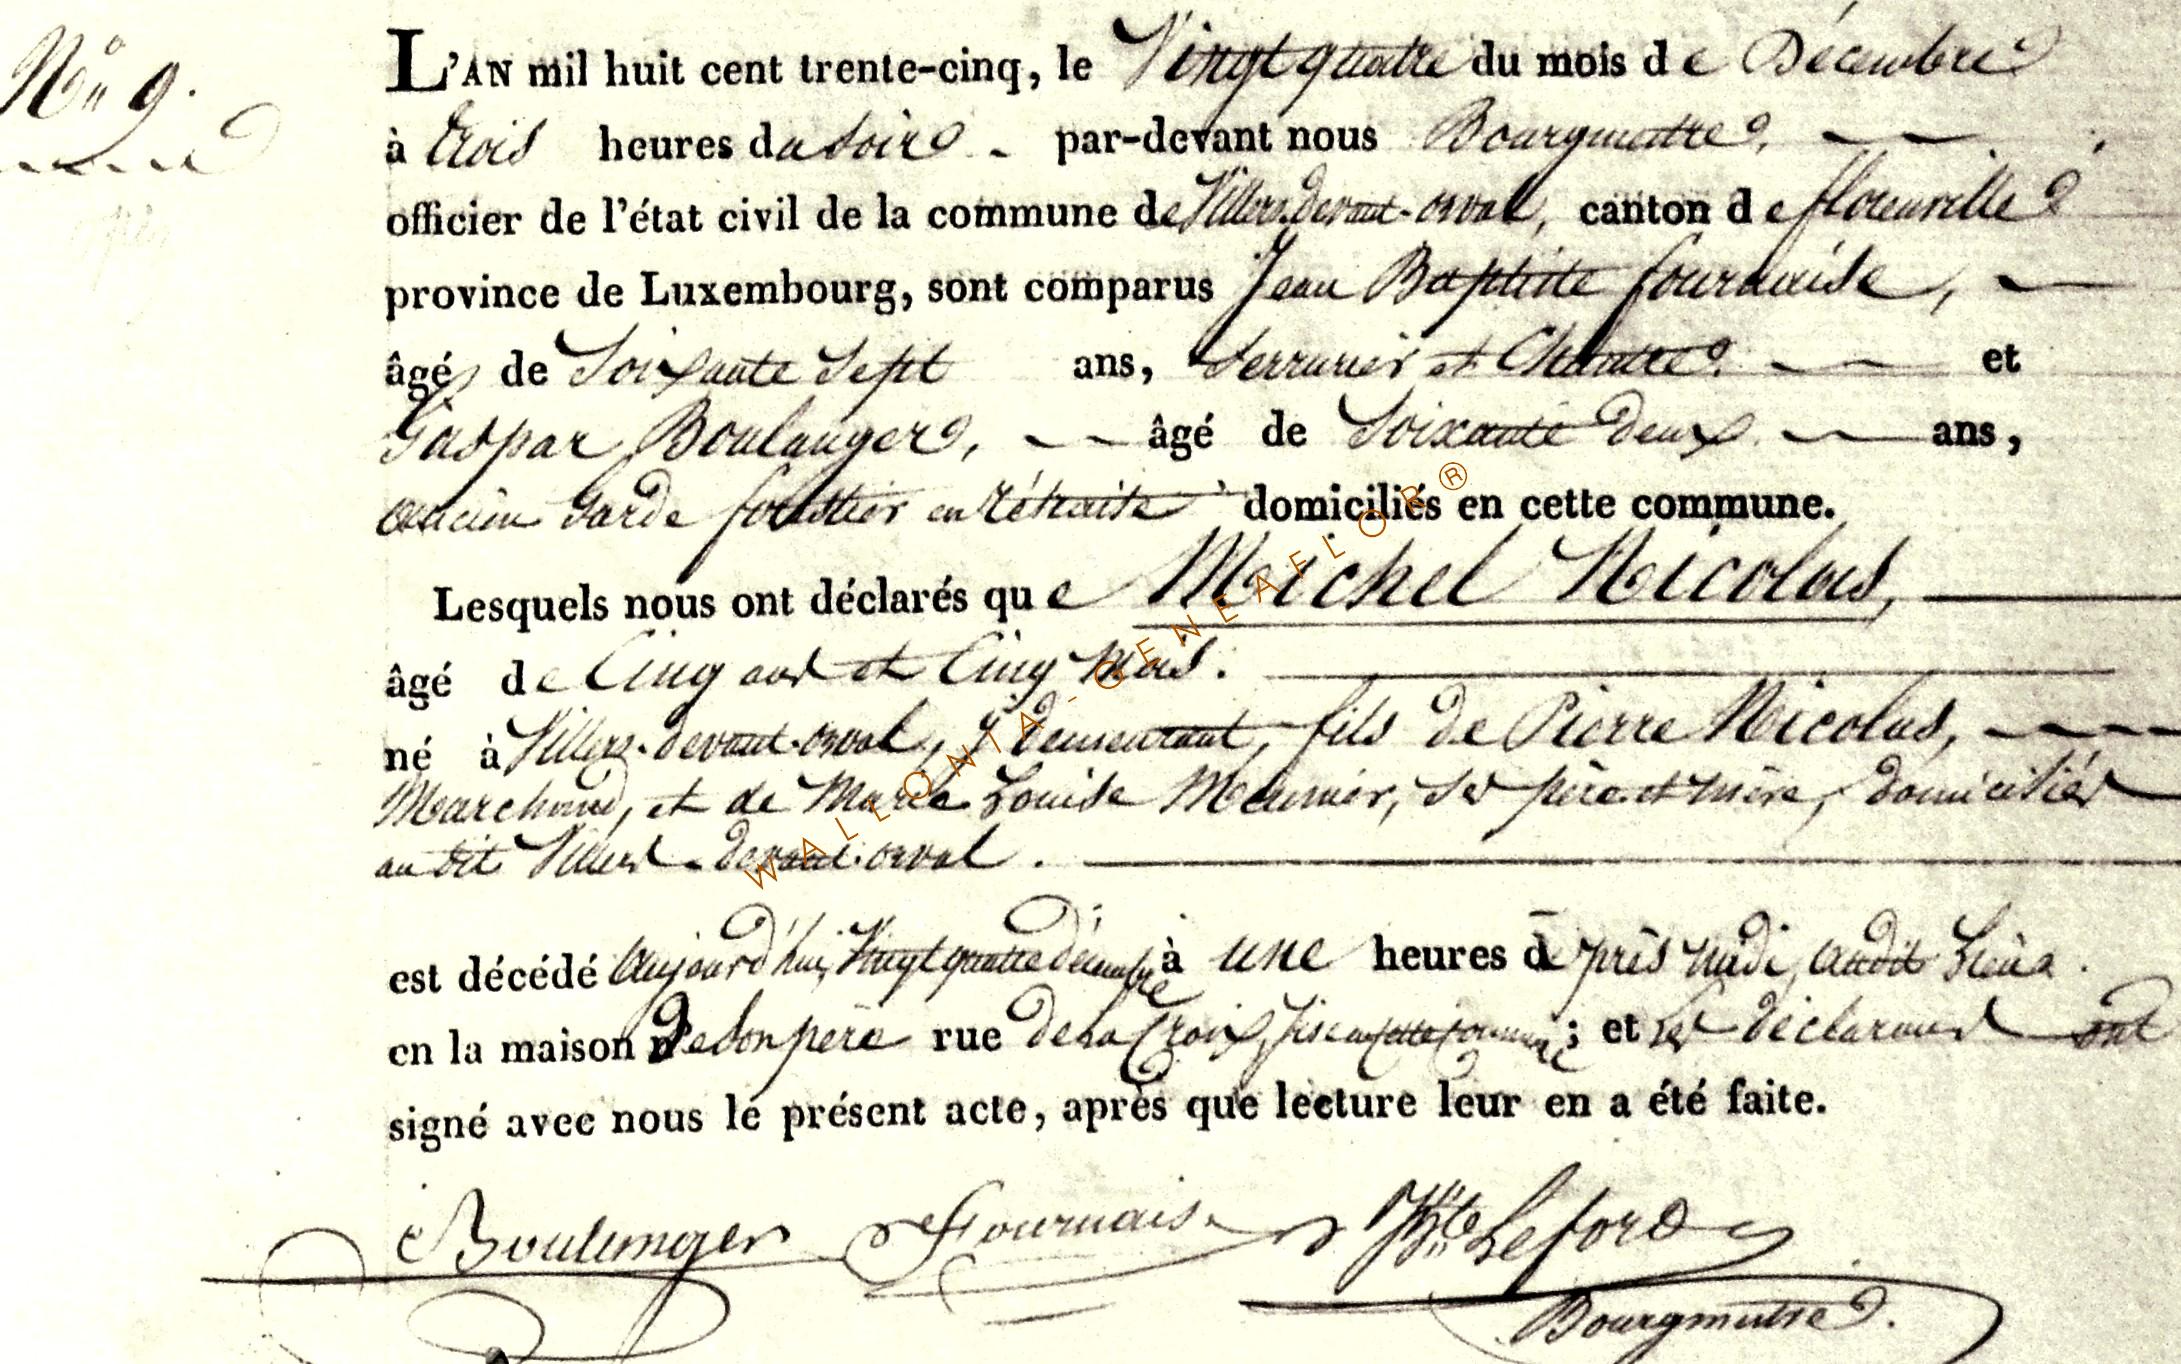 N° 9.
L'AN mil huit cent trente-cinq, le Vingt quatre du mois de Décembre
à trois heures du soir - par-devant nous Bourgmestre,
officier de l'état civil de la commune de Villers-devant-orval, canton de florenville
province de Luxembourg, sont comparus Jean Baptiste fournaise,
âgé de Soixante Sept ans, Serrurier et Chantre. et
Gaspar Boulanger, âgé de Soixante deux ans,
ancien Garde forestier en rétraite domiciliés en cette commune.
Lesquels nous ont déclarés que Meichel Nicolas,
âgé de Cinq ans et Cinq Mois.
né à Villers-devant-orval, y demeurant, fils de Pierre Nicolas,
Marchand, et de Marie Louise Meunier, ses père et mère, domiciliés
au dit Villers-devant-orval.
est décédé aujourd'hui, Vingt quatre décembre à une heures d'après midi, audit Lieu.
en la maison de son père rue de la Croix, sise en cette Commune; et les déclarans ont
signé avec nous le présent acte, après que lecture leur en a été faite.
Boulanger Fournaise JBte Leford
Bourgmestre.
WALLONIA-GENEAFLOR®